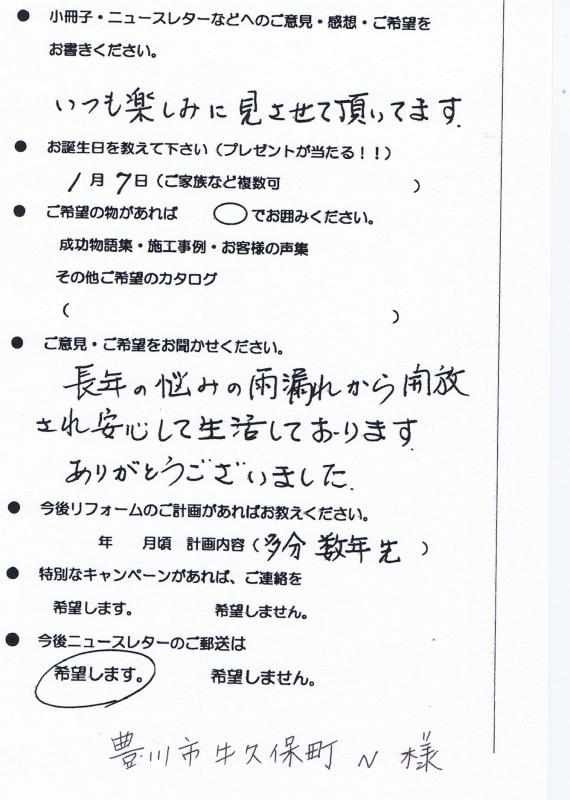 ● 小冊子・ニュースレターなどへのご意見・感想・ご希望を
お書きください。
いつも楽しみに見させて頂いてます.
● お誕生日を教えて下さい（プレゼントが当たる！！）
1月7日（ご家族など複数可　　　　　　　）
● ご希望の物があれば　○でお囲みください。
成功物語集・施工事例・お客様の声集
その他ご希望のカタログ
（　　　　　　　　　　　　　　　　　　）
● ご意見・ご希望をお聞かせください。
長年の悩みの雨漏れから開放
され安心して生活しております.
ありがとうございました.
● 今後リフォームのご計画があればお教えください。
年　月頃　計画内容（多分 数年先　）
● 特別なキャンペーンがあれば、ご連絡を
希望します。　　　希望しません。
● 今後ニュースレターのご郵送は
希望します。　　　希望しません。
豊川市牛久保町 N 様